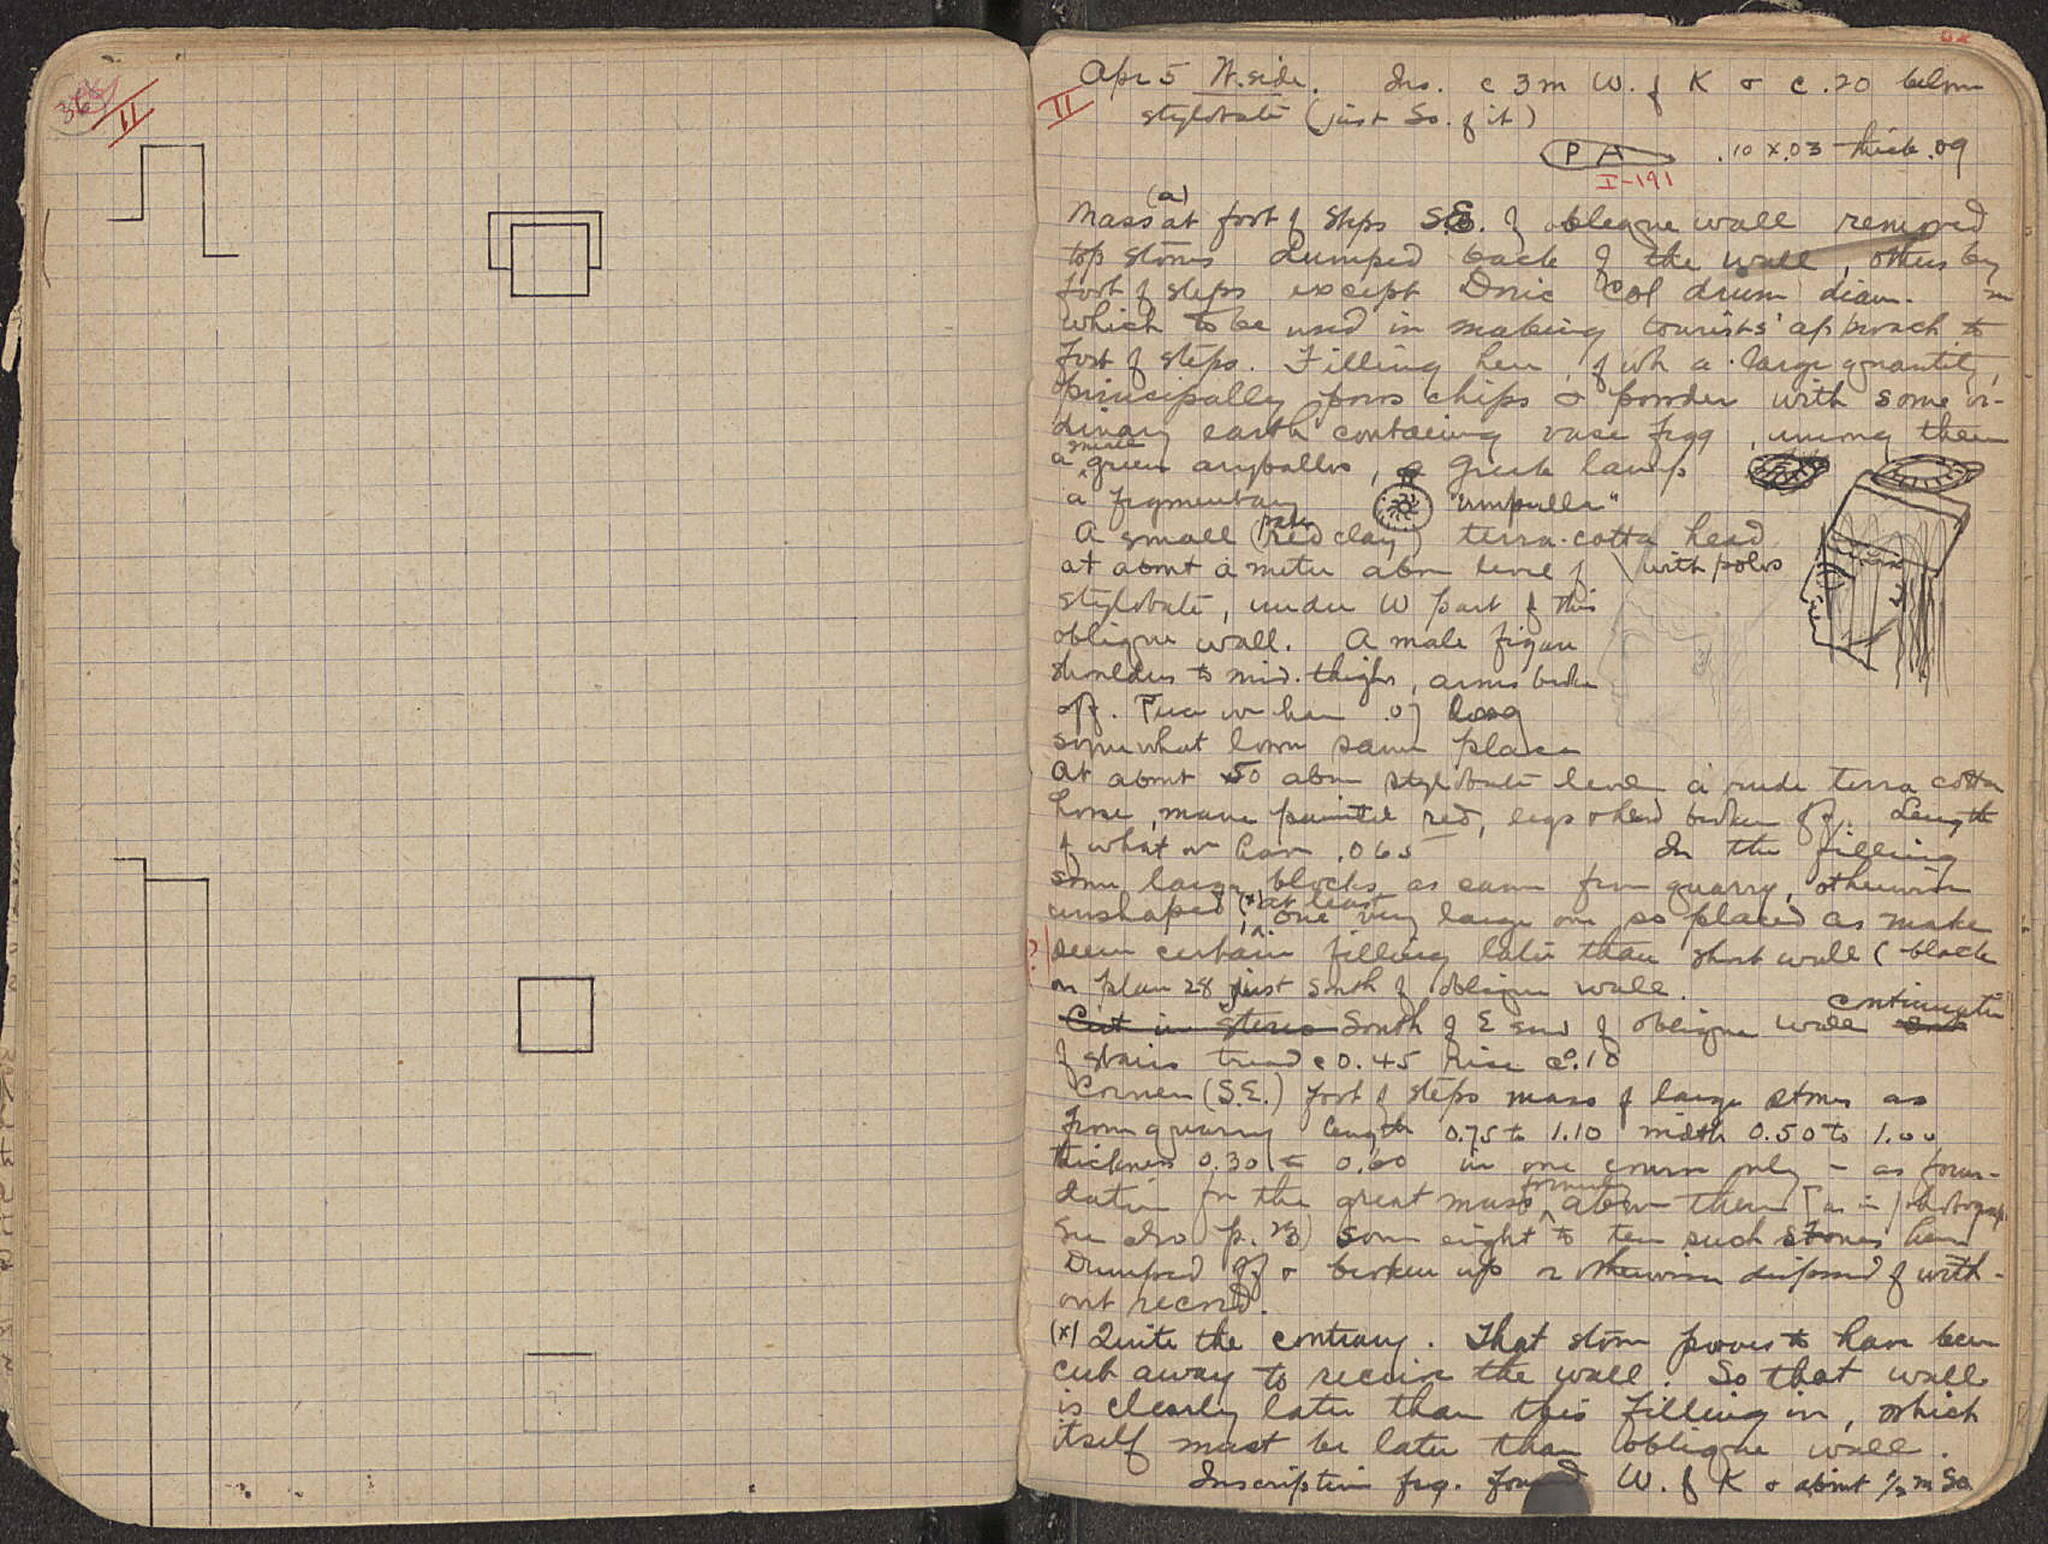 36
II
Apr 5 W. side. Ins. c 3 m W. of K & c .20 below
II
stylobate (just So. of it)
P A .10 x .03 thick .09
I-191
(a)
Mass at foot of steps SE. of obleque wall removed
top stones dumped back of the wall, others by
foot of steps except Doric Col drum diam. m
which to be used in making tourists' approach to
foot of steps. Filling here, of wh a large quantity,
principally poros chips & powder with some or-
dinary earth contaiing vase frgg, among them
a small green aryballos, a Greek lamp
a frgmentary "ampulla"
A small (pale red clay) terra-cotta head
at about a meter abov level of with polos
stylobate, under W part of this
oblique wall. A male figure
shoulders to mid. thighs, arms broken
off. Piece we have .07 long
somewhat lower same place
At about 50 above stylobate level a rude terra cotta
horse, mane painted red, legs & head broken off. Length
of what we have .065 In the filling
some large blocks as came from quarry, otherwise
unshaped (x) at least one very large one so placed as make
? seem certain filling later than short wall (black
on plan 28 just south of oblique wall.
Cut in stereo South of E end of oblique wall continuation
of stairs tread c 0.45 rise c 0.10
Corner (S.E.) foot of steps mass of large stones as
from quarry length 0.75 to 1.10 width 0.50 to 1.00
thickness 0.30 to 0.60 in one course only – as foun-
dation for the great mass formerly above them [as in photograph
See also p. 23) some eight to ten such stones here
Dumped off & broken up or otherwise disposed of with-
out record.
(x) Quite the contrary. That stone proves to have been
cut away to receive the wall. So that wall
is clearly later than this filling in, which
itself must be later than oblique wall.
Inscription frg. found W. of K & about ½ m So